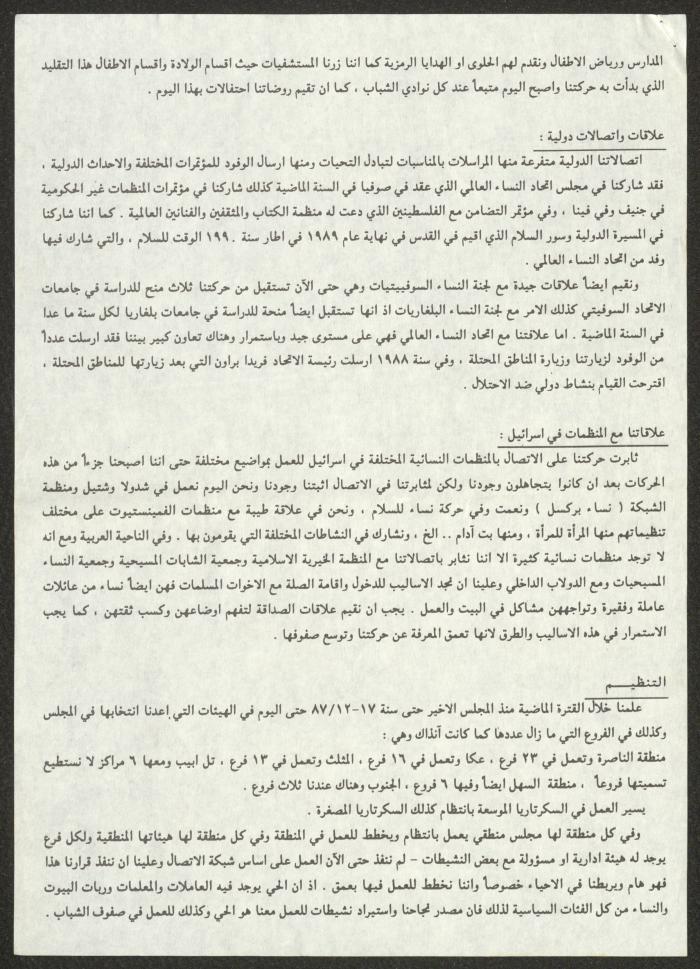 المدارس ورياض الاطفال ونقدم لهم الحلوى او الهدايا الرمزية كما اننا زرنا المستشفيات حيث اقسام الولادة واقسام الاطفال هذا التقليد
الذي بدأت به حركتنا واصبح اليوم متبعاً عند كل نوادي الشباب ، كما ان تقيم روضاتنا احتفالات بهذا اليوم .
علاقات واتصالات دولية :
اتصالاتنا الدولية متفرعة منها المراسلات بالمناسبات لتبادل التحيات ومنها ارسال الوفود للمؤتمرات المختلفة والاحداث الدولية ،
فقد شاركنا في مجلس اتحاد النساء العالمي الذي عقد في صوفيا في السنة الماضية كذلك شاركنا في مؤتمرات المنظمات غير الحكومية
في جنيف وفي فينا ، وفي مؤتمر التضامن مع الفلسطينين الذي دعت له منظمة الكتاب والمثقفين والفنانين العالمية . كما اننا شاركنا
في المسيرة الدولية وسور السلام الذي اقيم في القدس في نهاية عام ١٩٨٩ في اطار سنة ١٩٩٠ الوقت للسلام ، والتي شارك فيها
وفد من اتحاد النساء العالمي .
ونقيم ايضاً علاقات جيدة مع لجنة النساء السوفييتيات وهي حتى الآن تستقبل من حركتنا ثلاث منح للدراسة في جامعات
الاتحاد السوفيتي كذلك الامر مع لجنة النساء البلغاريات اذ انها تستقبل ايضاً منحة للدراسة في جامعات بلغاريا لكل سنة ما عدا
في السنة الماضية . اما علاقتنا مع اتحاد النساء العالمي فهي على مستوى جيد وباستمرار وهناك تعاون كبير بيننا فقد ارسلت عدداً
من الوفود لزيارتنا وزيارة المناطق المحتلة ، وفي سنة ١٩٨٨ ارسلت رئيسة الاتحاد فريدا براون التي بعد زيارتها للمناطق المحتلة ،
اقترحت القيام بنشاط دولي ضد الاحتلال .
علاقاتنا مع المنظمات في اسرائيل :
ثابرت حركتنا على الاتصال بالمنظمات النسائية المختلفة في اسرائيل للعمل بمواضيع مختلفة حتى اننا اصبحنا جزءاً من هذه
الحركات بعد ان كانوا يتجاهلون وجودنا ولكن لمثابرتنا في الاتصال اثبتنا وجودنا ونحن اليوم نعمل في شدولا وشتيل ومنظمة
الشبكة ( نساء بركسل ) ونعمت وفي حركة نساء للسلام ، ونحن في علاقة طيبة مع منظمات الفمينستيوت على مختلف
تنظيماتهم منها المرأة للمرأة ، ومنها بت آدام .. الخ ، ونشارك في النشاطات المختلفة التي يقومون بها . وفي الناحية العربية ومع انه
لا توجد منظمات نسائية كثيرة الا اننا نثابر باتصالاتنا مع المنظمة الخيرية الاسلامية وجمعية الشابات المسيحية وجمعية النساء
المسيحيات ومع الدولاب الداخلي وعلينا ان نجد الاساليب للدخول واقامة الصلة مع الاخوات المسلمات فهن ايضاً نساء من عائلات
عاملة وفقيرة وتواجههن مشاكل في البيت والعمل . يجب ان نقيم علاقات الصداقة لتفهم اوضاعهن وكسب ثقتهن ، كما يجب
الاستمرار في هذه الاساليب والطرق لانها تعمق المعرفة عن حركتنا وتوسع صفوفها .
التنظيـــم
علمنا خلال الفترة الماضية منذ المجلس الاخير حتى سنة ١٧-١٢/٨٧ حتى اليوم في الهيئات التي اعدنا انتخابها في المجلس
وكذلك في الفروع التي ما زال عددها كما كانت آنذاك وهي :
منطقة الناصرة وتعمل في ٢٣ فرع ، عكا وتعمل في ١٦ فرع ، المثلث وتعمل في ١٣ فرع ، تل ابيب ومعها ٦ مراكز لا نستطيع
تسميتها فروعاً ، منطقة السهل ايضاً وفيها ٦ فروع ، الجنوب وهناك عندنا ثلاث فروع .
يسير العمل في السكرتاريا الموسعة بانتظام كذلك السكرتاريا المصغرة .
وفي كل منطقة لها مجلس منطقي يعمل بانتظام ويخطط للعمل في المنطقة وفي كل منطقة لها هيئاتها المنطقية ولكل فرع
يوجد له هيئة ادارية او مسؤولة مع بعض النشيطات - لم ننفذ حتى الآن العمل على اساس شبكة الاتصال وعلينا ان ننفذ قرارنا هذا
فهو هام ويربطنا في الاحياء خصوصاً واننا نخطط للعمل فيها بعمق . اذ ان الحي يوجد فيه العاملات والمعلمات وربات البيوت
والنساء من كل الفئات السياسية لذلك فان مصدر نجاحنا واستيراد نشيطات للعمل معنا هو الحي وكذلك للعمل في صفوف الشباب .